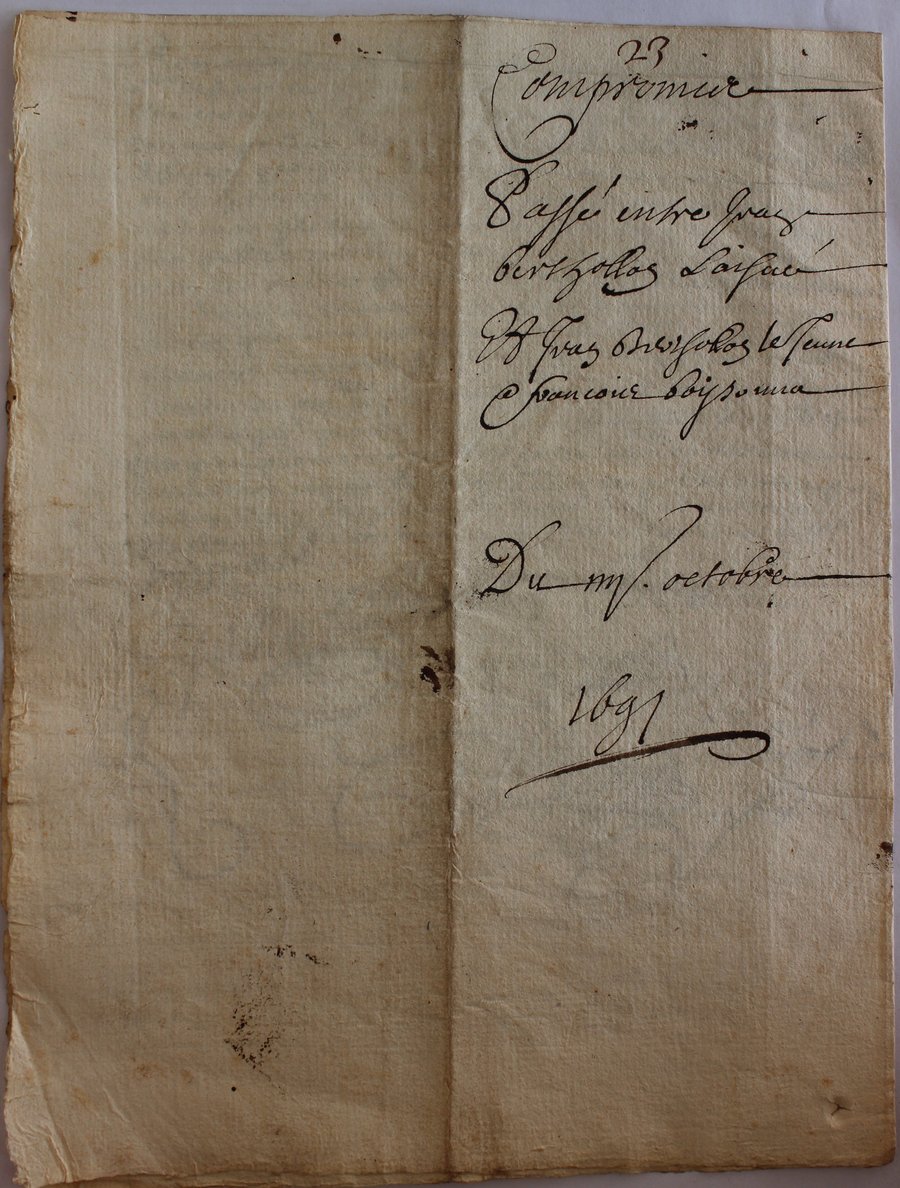 23
Compromice
Passé entre Jean
bertholloy L'aisné
Et Jean Bertholloy le Jeune
& francoise boissonna
Du octobre
1691